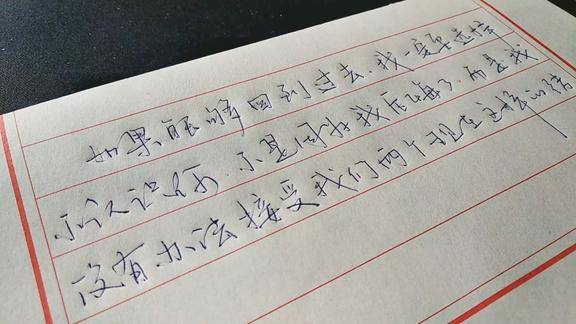 如果能够回到过去,我一定要选择
不认识你.不是因为我后悔了.而是我
没有办法接受我们两个现在这样的结